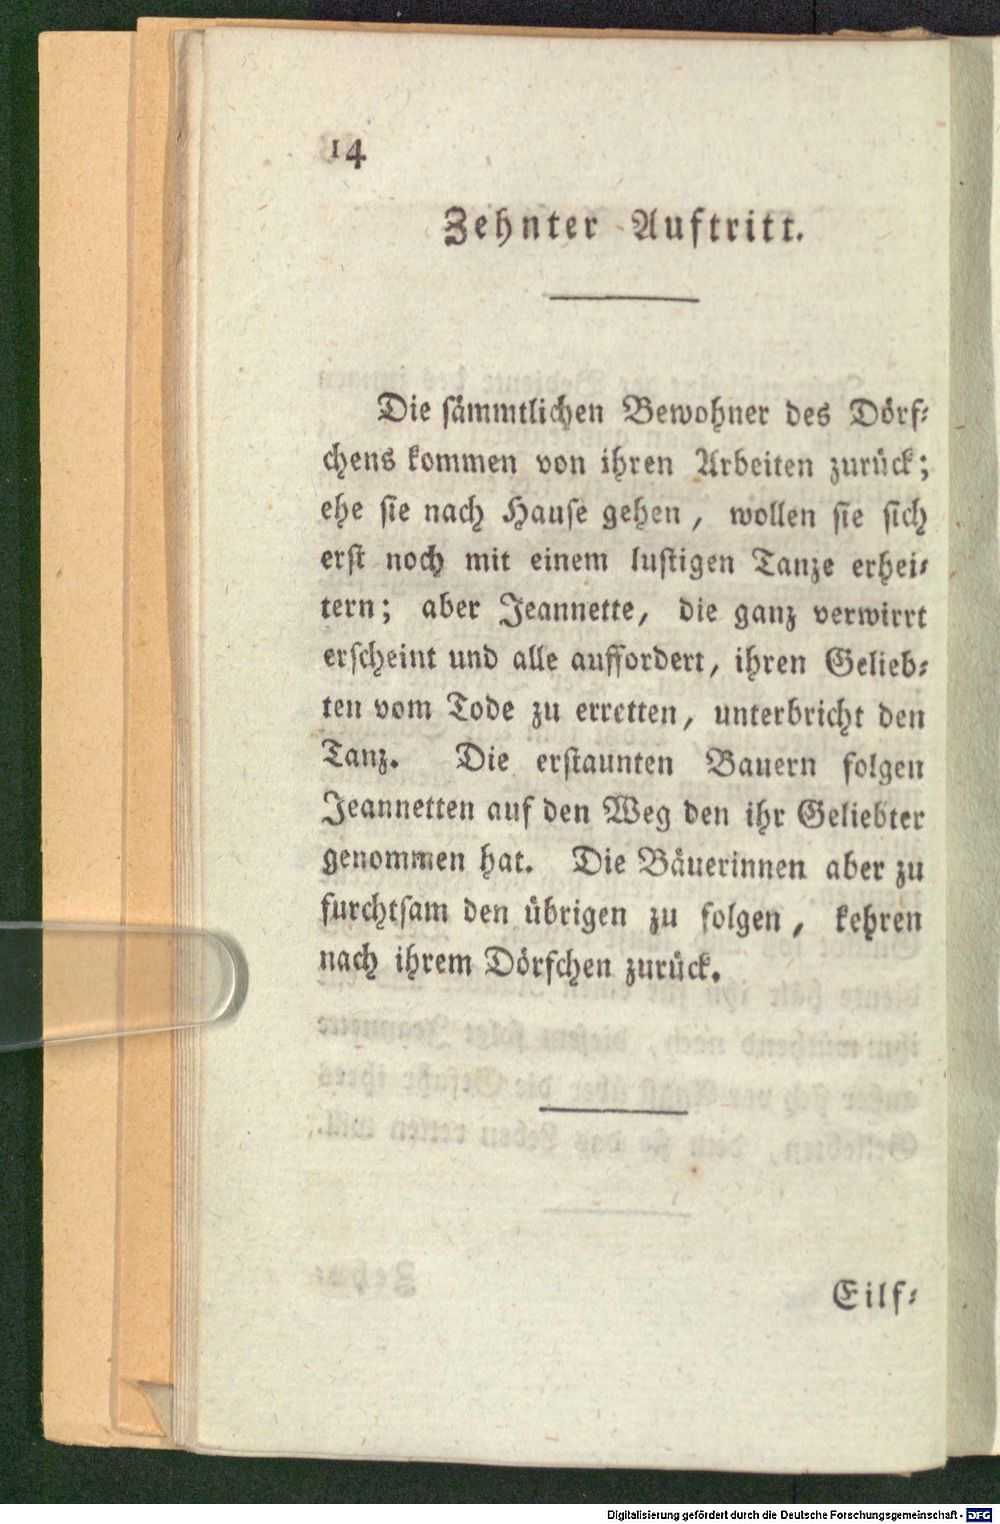 14
Zehnter Auftritt.
Die sämmtlichen Bewohner des Dörf-
chens kommen von ihren Arbeiten zurück;
ehe sie nach Hause gehen, wollen sie sich
erst noch mit einem lustigen Tanze erhei-
tern; aber Jeannette, die ganz verwirrt
erscheint und alle auffordert, ihren Gelieb-
ten vom Tode zu erretten, unterbricht den
Tanz. Die erstaunten Bauern folgen
Jeannetten auf den Weg den ihr Geliebter
genommen hat. Die Bäuerinnen aber zu
furchtsam den übrigen zu folgen, kehren
nach ihrem Dörfchen zurück.
Eilf-
Digitalisierung gefördert durch die Deutsche Forschungsgemeinschaft - DFG